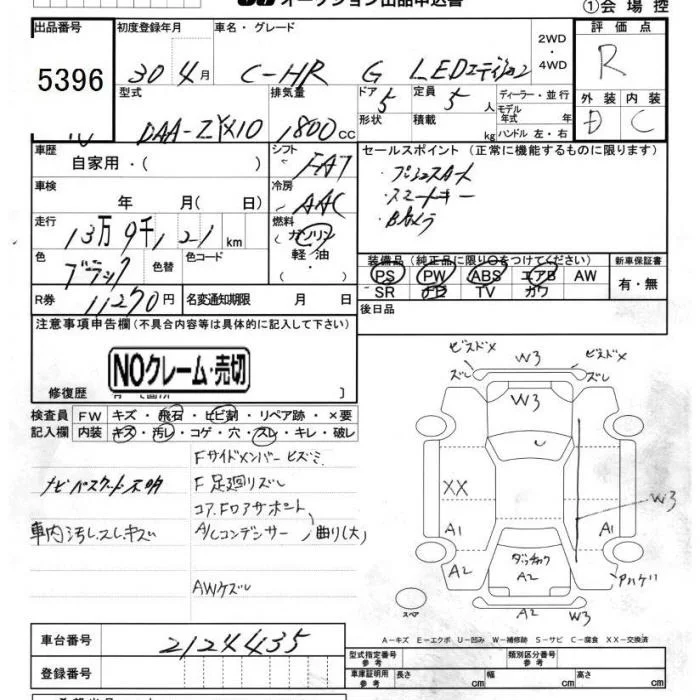 オークション出品申込書
①会場控
出品番号 初度登録年月 車名・グレード 2WD・4WD 評価点
5396 30年4月 C-HR G LEDエディション R
型式 排気量 ドア 定員 ディーラー・並行 外装 内装
DAA-ZYX10 1800cc 5 5人 モデル年式 年 D C
形状 積載 kg ハンドル 左・右
車歴 シフト セールスポイント (正常に機能するものに限ります)
自家用・( ) FAT プッシュスタート
車検 冷房 スマートキー
年 月( 日) AAC Bカメラ
走行 燃料
13万9千121km ガソリン
軽油
( ・ )
色 色替 色コード 装備品(純正品に限り○をつけてください) 新車保証書
ブラック PS PW ABS エアB AW 有・無
SR ナビ TV カワ
R券 11270円 名変通知期限 月 日 後日品
注意事項申告欄(不具合内容等は具体的に記入して下さい)
NOクレーム・売切
修復歴
検査員 FW キズ・飛石・ヒビ割・リペア跡・×要
記入欄 内装 キズ・汚レ・コゲ・穴・スレ・キレ・破レ
Fサイドメンバーヒズミ
ナビパスワード不明 F足廻リズレ
コア.Fロアサポート
車内汚レ.スレ.キズ A/Cコンデンサー 曲り(大)
AWケズレ
ビスドメ ズレ W3 ビスドメ ズレ
W3
XX W3
A1 A1
A2 ダッチカク A2 Pハゲ
スペア A2 W3
A-キズ E-エクボ U-凹み W-補修跡 S-サビ C-腐食 XX-交換済
車台番号 2124435
登録番号
型式指定番号 参考 類別区分番号 参考
車庫証明用 参考 長さ cm 幅 cm 高さ cm